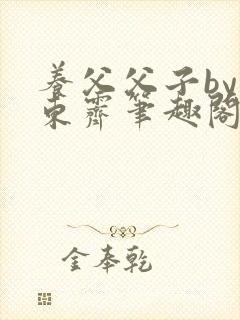 养父父子by
东霽筆趣閣
金奉乾